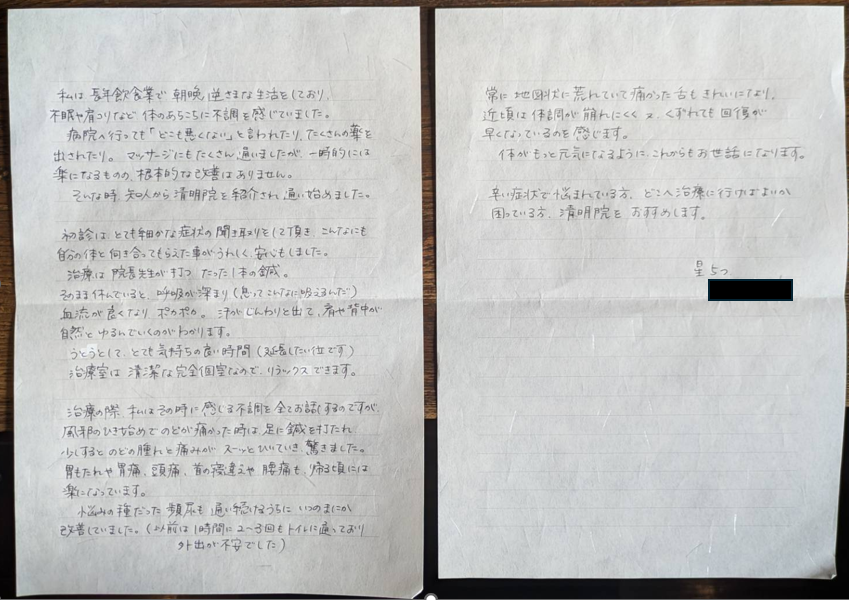 私は、長年飲食業で朝晩逆さまな生活をしており、
不眠や肩こりなど体のあちこちに不調を感じていました。
病院へ行っても「どこも悪くない」と言われたり、たくさんの薬を
出されたり。マッサージにもたくさん通いましたが、一時的には
楽になるものの、根本的な改善はありません。
そんな時、知人から清明院を紹介され、通い始めました。
初診は、とても細かな症状の聞き取りをして頂き、こんなにも
自分の体と向き合ってもらえた事がうれしく、安心もしました。
治療は院長先生が打つ たった1本の鍼。
そのまま休んでいると、呼吸が深まり(息ってこんなに吸えるんだ)
血流が良くなり、ポカポカ。汗がじんわりと出て、肩や背中が
自然とゆるんでいくのがわかります。
うとうとして、とても気持ちの良い時間(延長したい位です)
治療室は清潔な完全個室なので、リラックスできます。
治療の際、私はその時に感じる不調を全てお話しするのですが、
風邪のひき始めでのどが痛かった時は、足に鍼を打たれ
少しするとのどの腫れと痛みがスーッとひいていき、驚きました。
胃もたれや胃痛、頭痛、首の寝違えや腰痛も、帰る頃には
楽になっています。
悩みの種だった頻尿も通い続けるうちに いつのまにか
改善していました。(以前は1時間に2〜3回もトイレに通っており
外出が不安でした)
常に地図状に荒れていて痛かった舌もきれいになり、
近頃は体調が崩れにくく又、くずれても回復が
早くなっているのを感じます。
体がもっと元気になるように、これからもお世話になります。
辛い症状で悩まれている方、どこへ治療に行けばよいか
困っている方、清明院をおすすめします。
星5つ